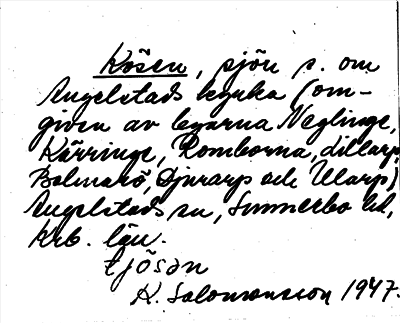 Kösen, sjön s. om
Angelstads kyrka (om-
given av byarna Neglinge,
Kärringe, Romborna,
Bolmarö, Djurarp och Ularp)
Angelstads sn, Sunnerbo hd,
Krb. län.
tjösen
K. Salomonsson 1947.